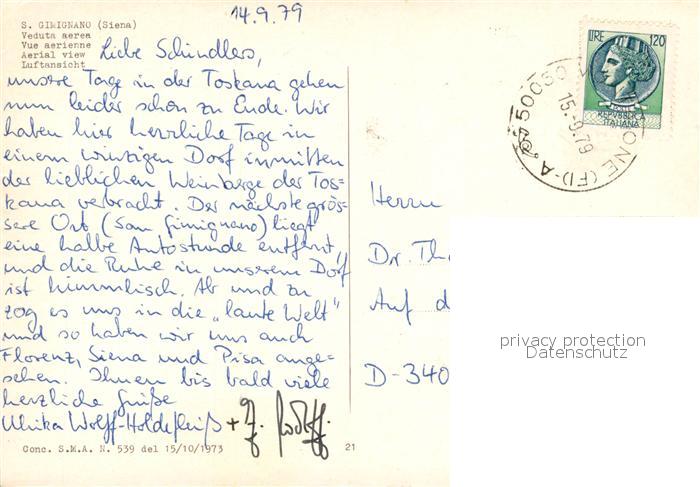 14.9.79
S. GIMIGNANO (Siena)
Veduta aerea
Vue aerienne
Aerial view
Luftansicht
Liebe Schindlers,
unsere Tage in der Toskana gehen
nun leider schon zu Ende. Wir
haben hier herrliche Tage in
einem winzigen Dorf inmitten
der lieblichen Weinberge der Tos=
kana verbracht. Der nächste grös=
sere Ort (San Gimignano) liegt
eine halbe Autostunde entfernt,
und die Ruhe in unserem Dorf
ist himmlisch. Ab und zu
zog es uns in die „laute Welt"
und so haben wir uns auch
Florenz, Siena und Pisa ange=
sehen. Ihnen bis bald viele
herzliche Grüße
Ulrika Wolff-Holdefleiß +
Conc. S.M.A. N. 539 del 15/10/1973
21
LIRE 120
REPVBBLICA
ITALIANA
50050
15.9.79
ONE (FI)-A
Herrn
Dr. Th
Auf d
D-340
privacy protection
Datenschutz